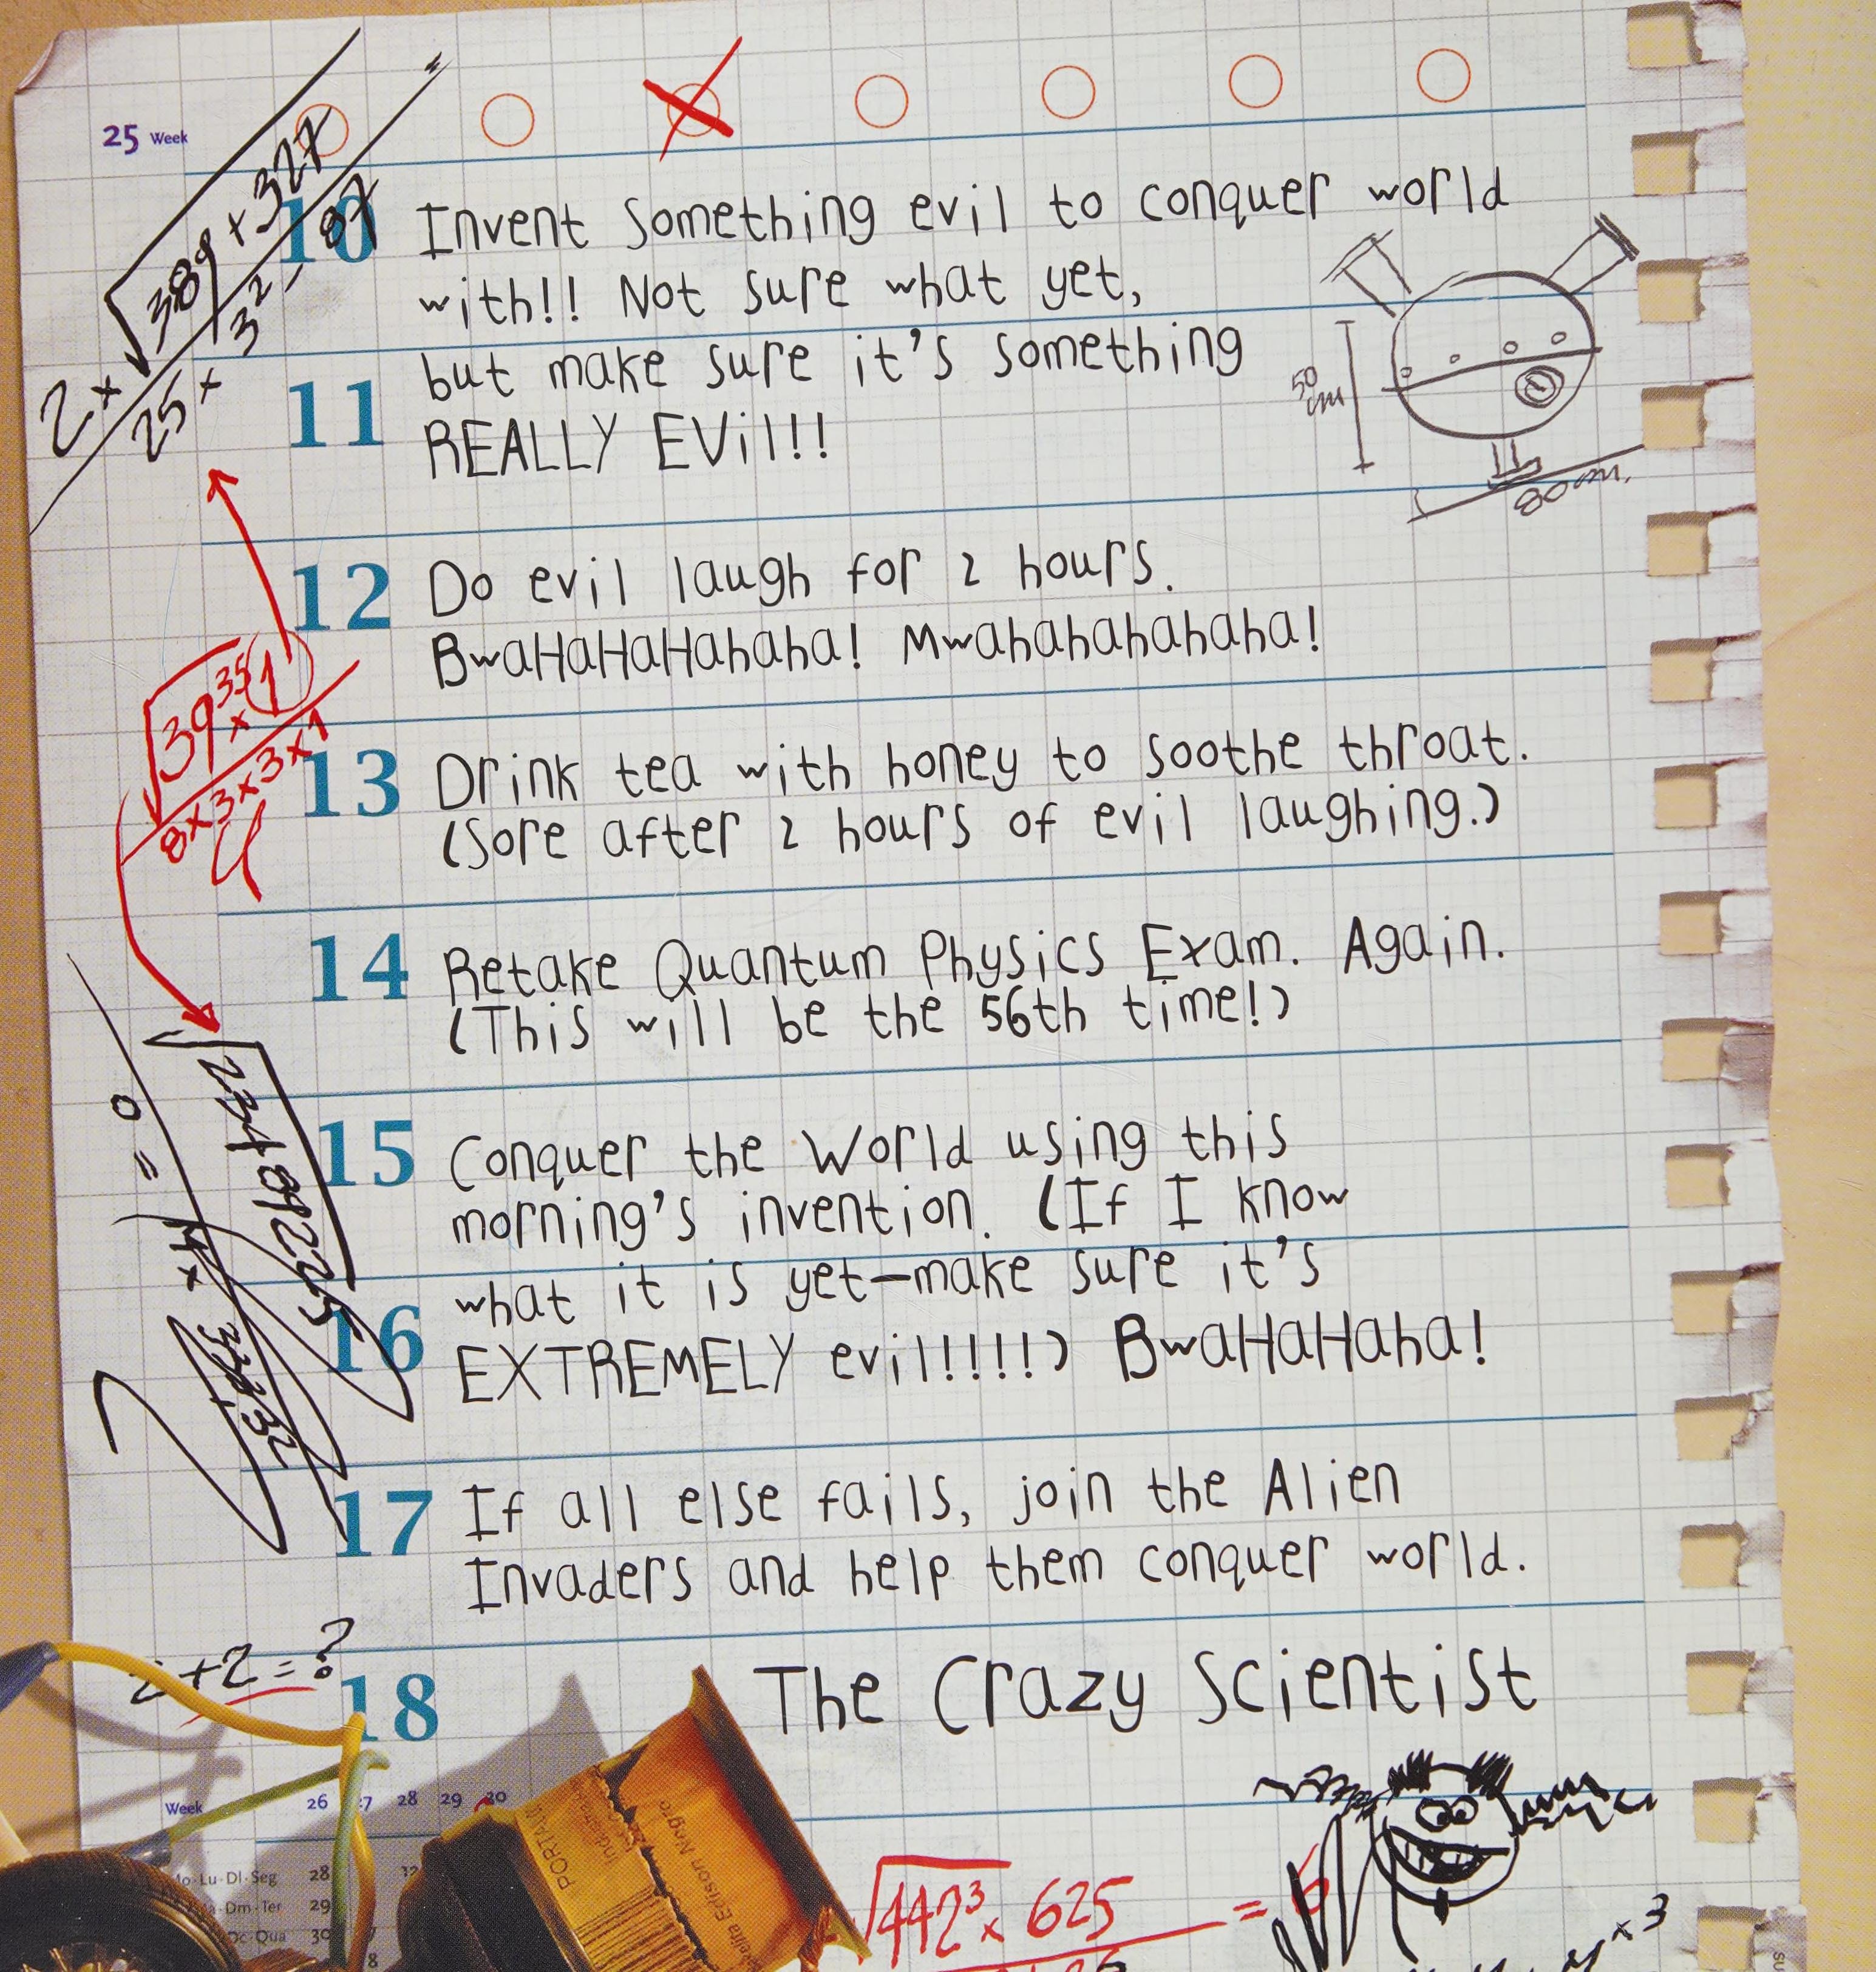 25 Week
10 Invent something evil to conquer world
with!! Not sure what yet,
11 but make sure it's something
REALLY EVil!!
50 cm
80 cm.
12 Do evil laugh for 2 hours.
BwaHaHaHahaha! Mwahahahahaha!
13 Drink tea with honey to soothe throat.
(Sore after 2 hours of evil laughing.)
14 Retake Quantum Physics Exam. Again.
(This will be the 56th time!)
15 Conquer the World using this
morning's invention. (If I know
what it is yet—make sure it's
16 EXTREMELY evil!!!!!) BwaHaHaHaha!
17 If all else fails, join the Alien
Invaders and help them conquer world.
2+2=?
18 The Crazy Scientist
Week 26 27 28 29 30
Lu·Dl·Seg 28
Dm·Ter 29
Qua 30
8
√442³ × 625 =